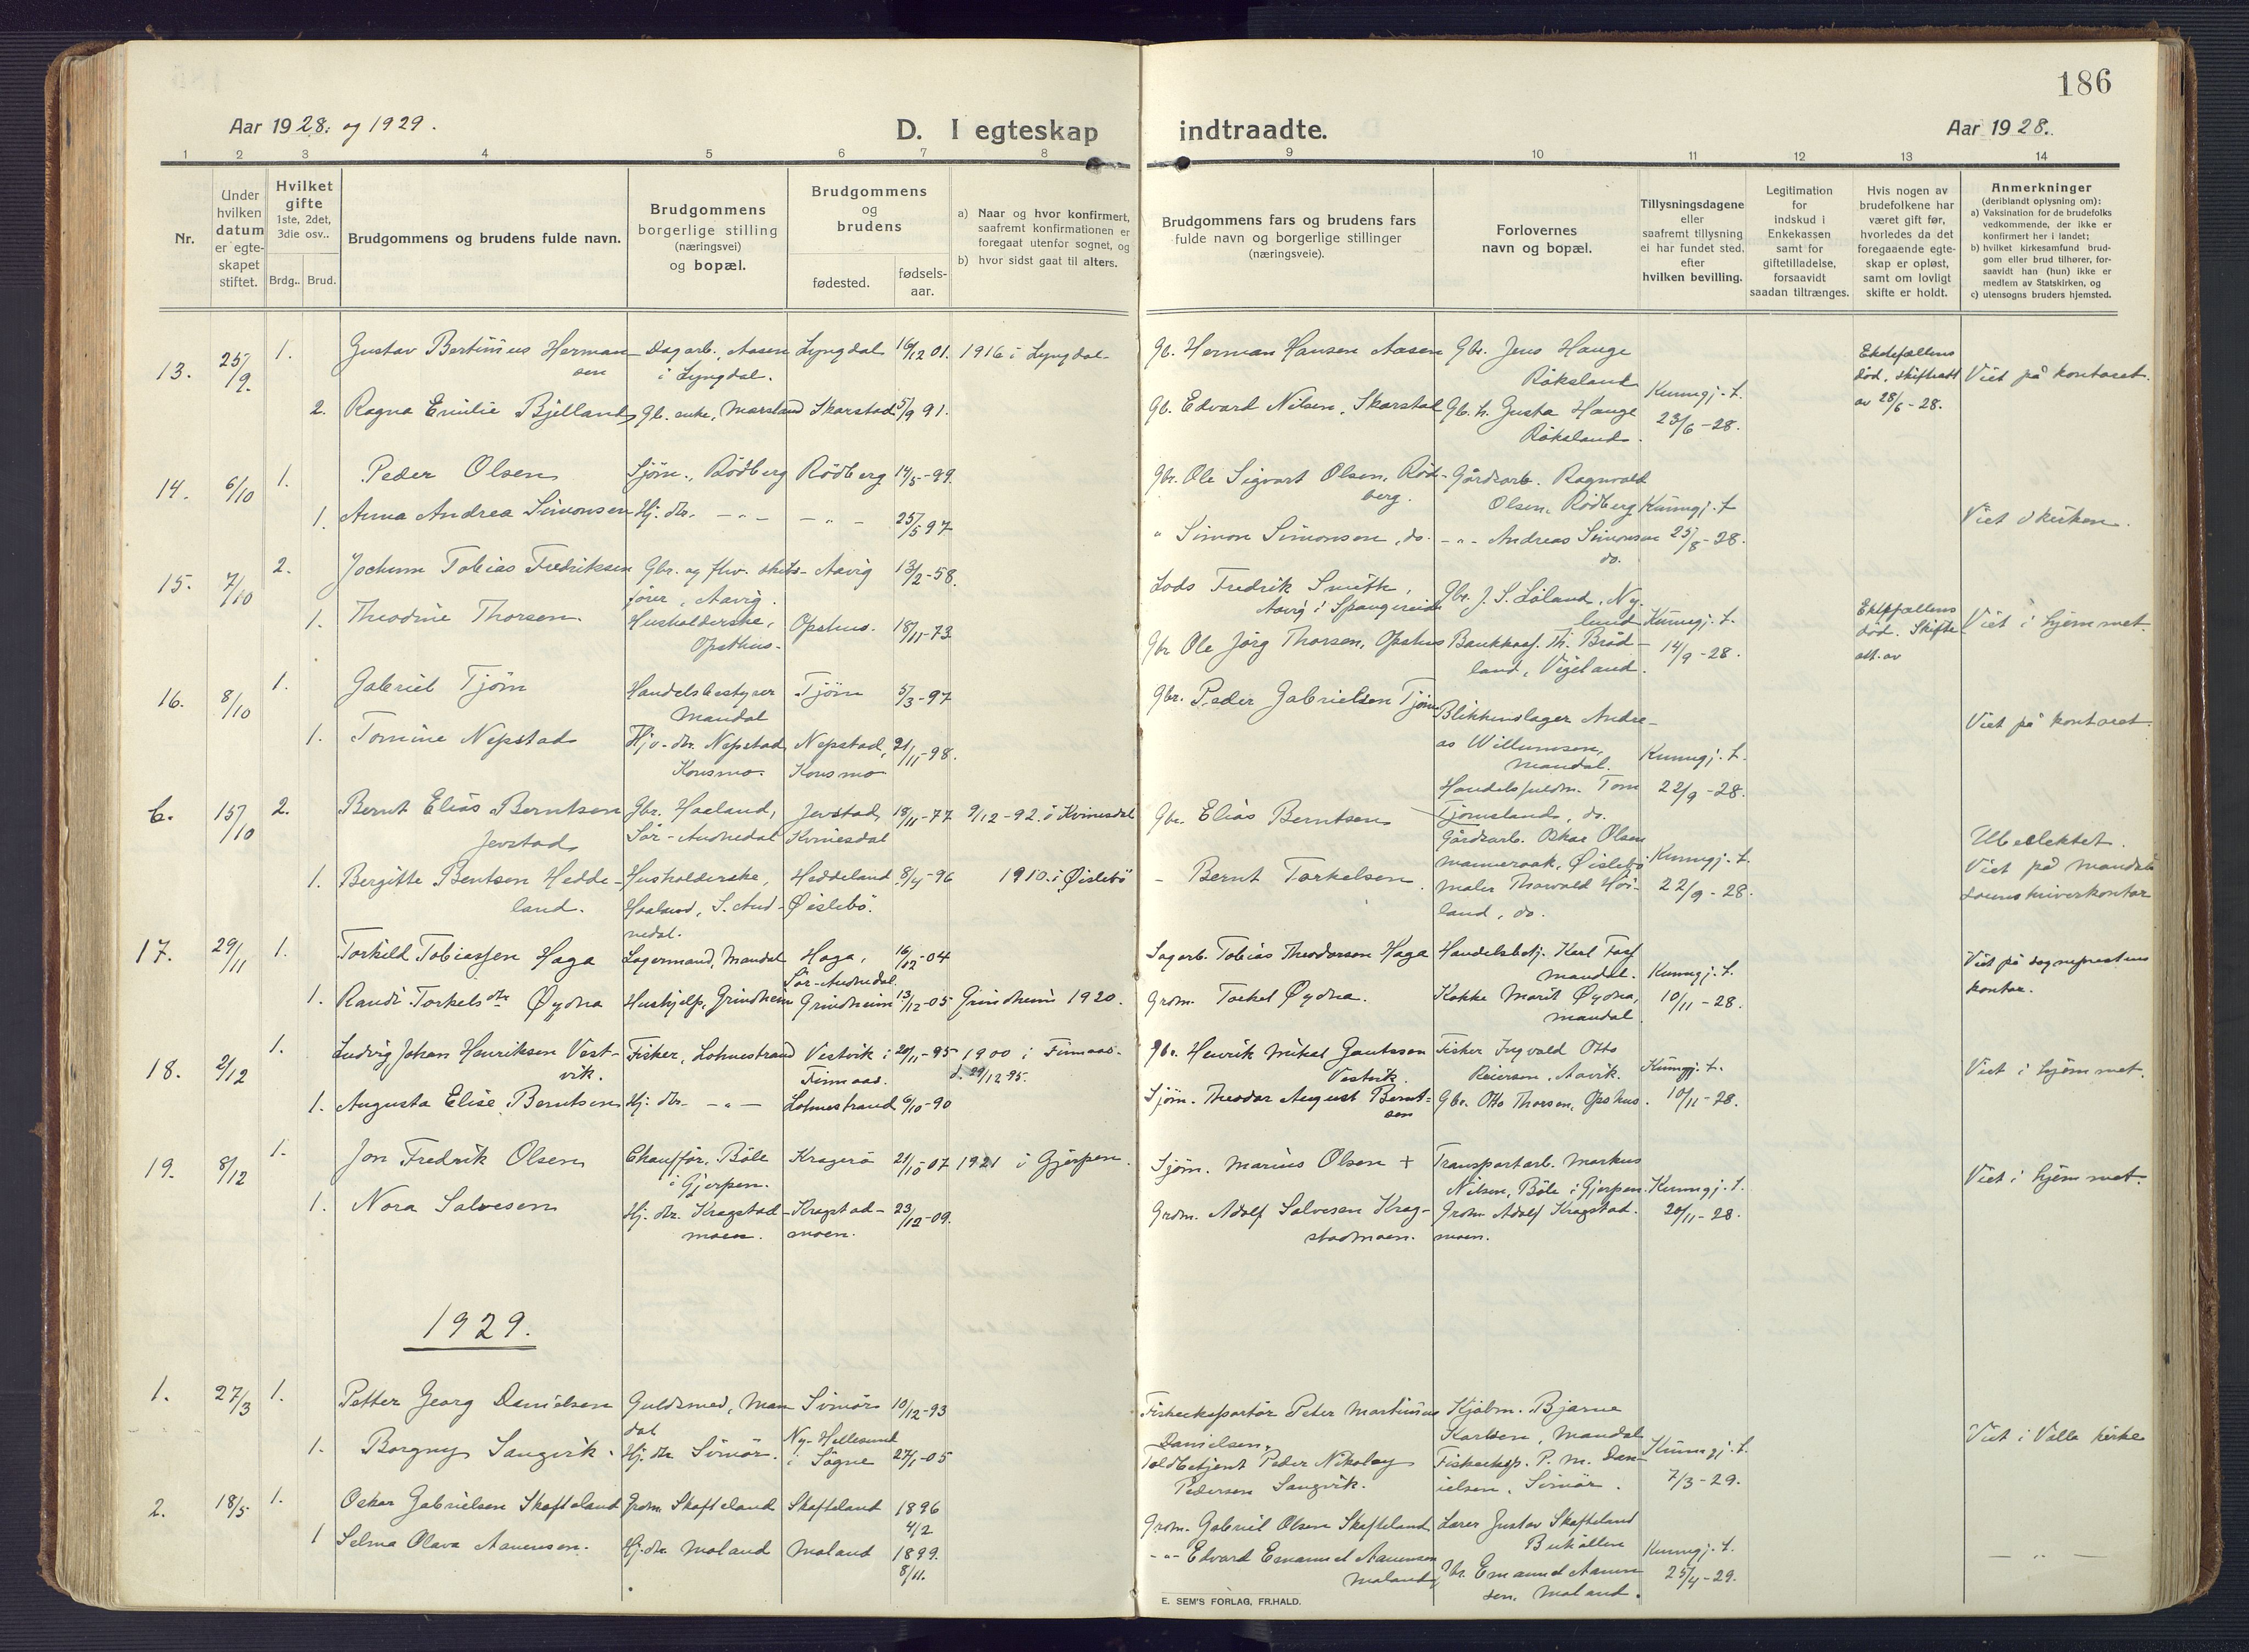 186
Aar 1928. og 1929.
D. I egteskap indtraadte.
Aar 1928.
1 2 3 4 5 6 7 8 9 10 11 12 13 14
Nr.
Under hvilken datum er egteskapet stiftet.
Hvilket gifte
1ste, 2det, 3die osv..
Brdg.. Brud.
Brudgommens og brudens fulde navn.
Brudgommens borgerlige stilling
(næringsvei)
og bopæl.
Brudgommens og brudens
fødested.
fødsels-aar.
a) Naar og hvor konfirmert,
saafremt konfirmationen er
foregaat utenfor sognet, og
b) hvor sidst gaat til alters.
Brudgommens fars og brudens fars
fulde navn og borgerlige stillinger
(næringsveie).
Forlovernes
navn og bopæl.
Tillysningsdagene
eller
saafremt tillysning
ei har fundet sted,
efter
hvilken bevilling.
Legitimation
for
indskud i
Enkekassen
samt for
giftetilladelse,
forsaavidt
saadan tiltrænges.
Hvis nogen av
brudefolkene har
været gift før,
hvorledes da det
foregaaende egte-
skap er opløst,
samt om lovligt
skifte er holdt.
Anmerkninger
(deriblandt oplysning om):
a) Vaksination for de brudefolks
vedkommende, der ikke er
konfirmert her i landet;
b) hvilket kirkesamfund brud-
gom eller brud tilhører, for-
saavidt han (hun) ikke er
medlem av Statskirken, og
c) utensogns bruders hjemsted.
13. 25/9. 1. Gustav Bertinius Herman- Dagarb., Aasen Lyngdal 16/12 01. 1916 i Lyngdal. Gb. Herman Hansen Aasen Gbr. Jens Hauge
sen i Lyngdal. Röksland
2. Ragna Emilie Bjelland Gb. enke, Marsland Skarstad 5/9 91. Gb. Edvard Nilsen, Skarstad Gb. h. Gusta Hauge
Röksland.
Kunngj. t. 23/6-28.
Ektefællens
död, skifteatt
av 28/6-28.
Viet på kontoret.
14. 6/10 1. Peder Olsen Sjöm., Rödberg Rödberg 14/5-99. Gbr. Ole Sigvart Olsen, Röd- Gårdsarb. Ragnvald
berg. Olsen, Rödberg
1. Anna Andrea Simonsen Hj. dtr. -"- -"- 25/5 97 " Simon Simonsen, do. -"- Andreas Simonsen
do.
Kunngj. t 25/8-28.
Viet i kirken.
15. 7/10 2. Jochum Tobias Fredriksen Gbr. og fhv. skibs- Aavig 13/2-58. Lods Fredrik Smith, Gbr. J. S. Löland, Ny-
förer, Aavig. Aavig i Spangereid lund
1. Theodine Thorsen. Husholderske, Opshus. 18/11-73 Gbr Ole Jörg Thorsen, Opshus Bankkass. Th. Bröd-
Opsthus. land, Vigeland.
Kunngj. t. 14/9-28.
Ektefællens
död. Skifte
att. av
Viet i hjemmet
16. 8/10 1. Gabriel Tjöm Handelsbestyrer Tjöm 5/3-97 Gbr. Peder Gabrielsen Tjöm Blikkenslager Andre-
Mandal as Willumsen,
Mandal.
1. Tomine Nepstad Hjv. dtr. Nepstad Nepstad, 21/11-98. Handelsfuldm. Tom
Konsmo. Konsmo Tjomsland, do.
Kunngj. t. 22/9-28.
Viet på kontoret.
6. 15/10 2. Bernt Elias Berntsen Gbr. Haaland, Jerstad, 18/11-77 9/12-92. i Kvinesdal Gbr. Elias Berntsen Gårdsarb. Oskar Olsen
Jerstad Sör-Audnedal Kvinesdal Manneraak, Øislebö.
1. Bergitte Bentsen Hedde- Husholderske, Heddeland 8/4-96 1910. i Øislebö - Bernt Torkelsen. Maler Thorvald Höi-
land. Haaland, S. Aud- Øislebö. land, do.
nedal.
Kunngj. t. 22/9-28.
Ubeslektet.
Viet på Mandals
Sorenskriverkontor
17. 29/11 1. Torkild Tobiassen Haga Lagermand, Mandal Haga, 16/12-04 Sagarb. Tobias Theodorsen Haga Handelsbetj. Karl
Sör-Audnedal Mandal.
1. Randi Torkelsdtr Øydna Hushjelp, Grindheim Grindheim 13/12-05 Grindheim 1920. Grdm. Torkel Øydna. Kokke Marit Øydna,
Mandal
Kunngj. t. 10/11-28.
Viet på sogneprestens
kontor.
18. 2/12 1. Ludvig Johan Henriksen Vest- Fisker, Lohnestrand Vestvik i 20/11-95 1900 i Finnaas. Gbr. Henrik Mikal Gautesen Fisker Ingvald Otto
vik. Finnaas. d. 29/12 95. Vestvik. Reiersen, Aavik.
1. Augusta Elise Berntsen Hj. dtr. -"- Lohnestrand 6/10-90 Sjöm. Theodor August Bernt- Gbr. Otto Thorsen, Opshus.
sen
Kunngj. t. 10/11-28.
Viet i hjemmet.
19. 8/12 1. Jon Fredrik Olsen Chaufför, Böle Kragerö 21/10-07 1921 i Gjerpen. Sjöm. Marius Olsen + Transportarb. Markus
i Gjerpen. Nilsen, Böle i Gjerpen.
1. Nora Salvesen Hj. dtr. Kragstad- Kragstad- 23/12-09. Grdm. Adolf Salvesen Krag- Grdm Adolf Kragstad-
moen. moen. stadmoen. moen.
Kunngj. t. 20/11-28.
Viet i hjemmet.
1929.
1. 27/3 1. Petter Georg Danielsen Guldsmed, Man Svinör 10/12-93 Fiskeeksportör Peter Martinius Kjöbm. Bjarne
dal Danielsen. Karlsen, Mandal
1. Borgny Sangvik. Hj. dtr Svinör. Ny-Hellesund
i Sögne 27/1-05 Toldbetjent Peder Nikolay Fiskeeksp. P. M. Dan-
Pedersen Sangvik. ielsen, Svinör.
Kunngj. t. 7/3-29.
Viet i Valle kirke
2. 18/5 1. Oskar Gabrielsen Skofteland Grdm Skofteland Skofteland 1896 4/2 Grdm. Gabriel Olsen Skofteland Lærer Gustav Skofteland
1 Selma Olava Aanensen. Hj. dtr. Moland Moland 1899. 8/11. -"- Edvard Emanuel Aanensen Gbr. Emanuel Aanen
Moland sen, Moland.
Kunngj. t. 25/4-29.
- " -
E. SEM'S FORLAG, FR.HALD.